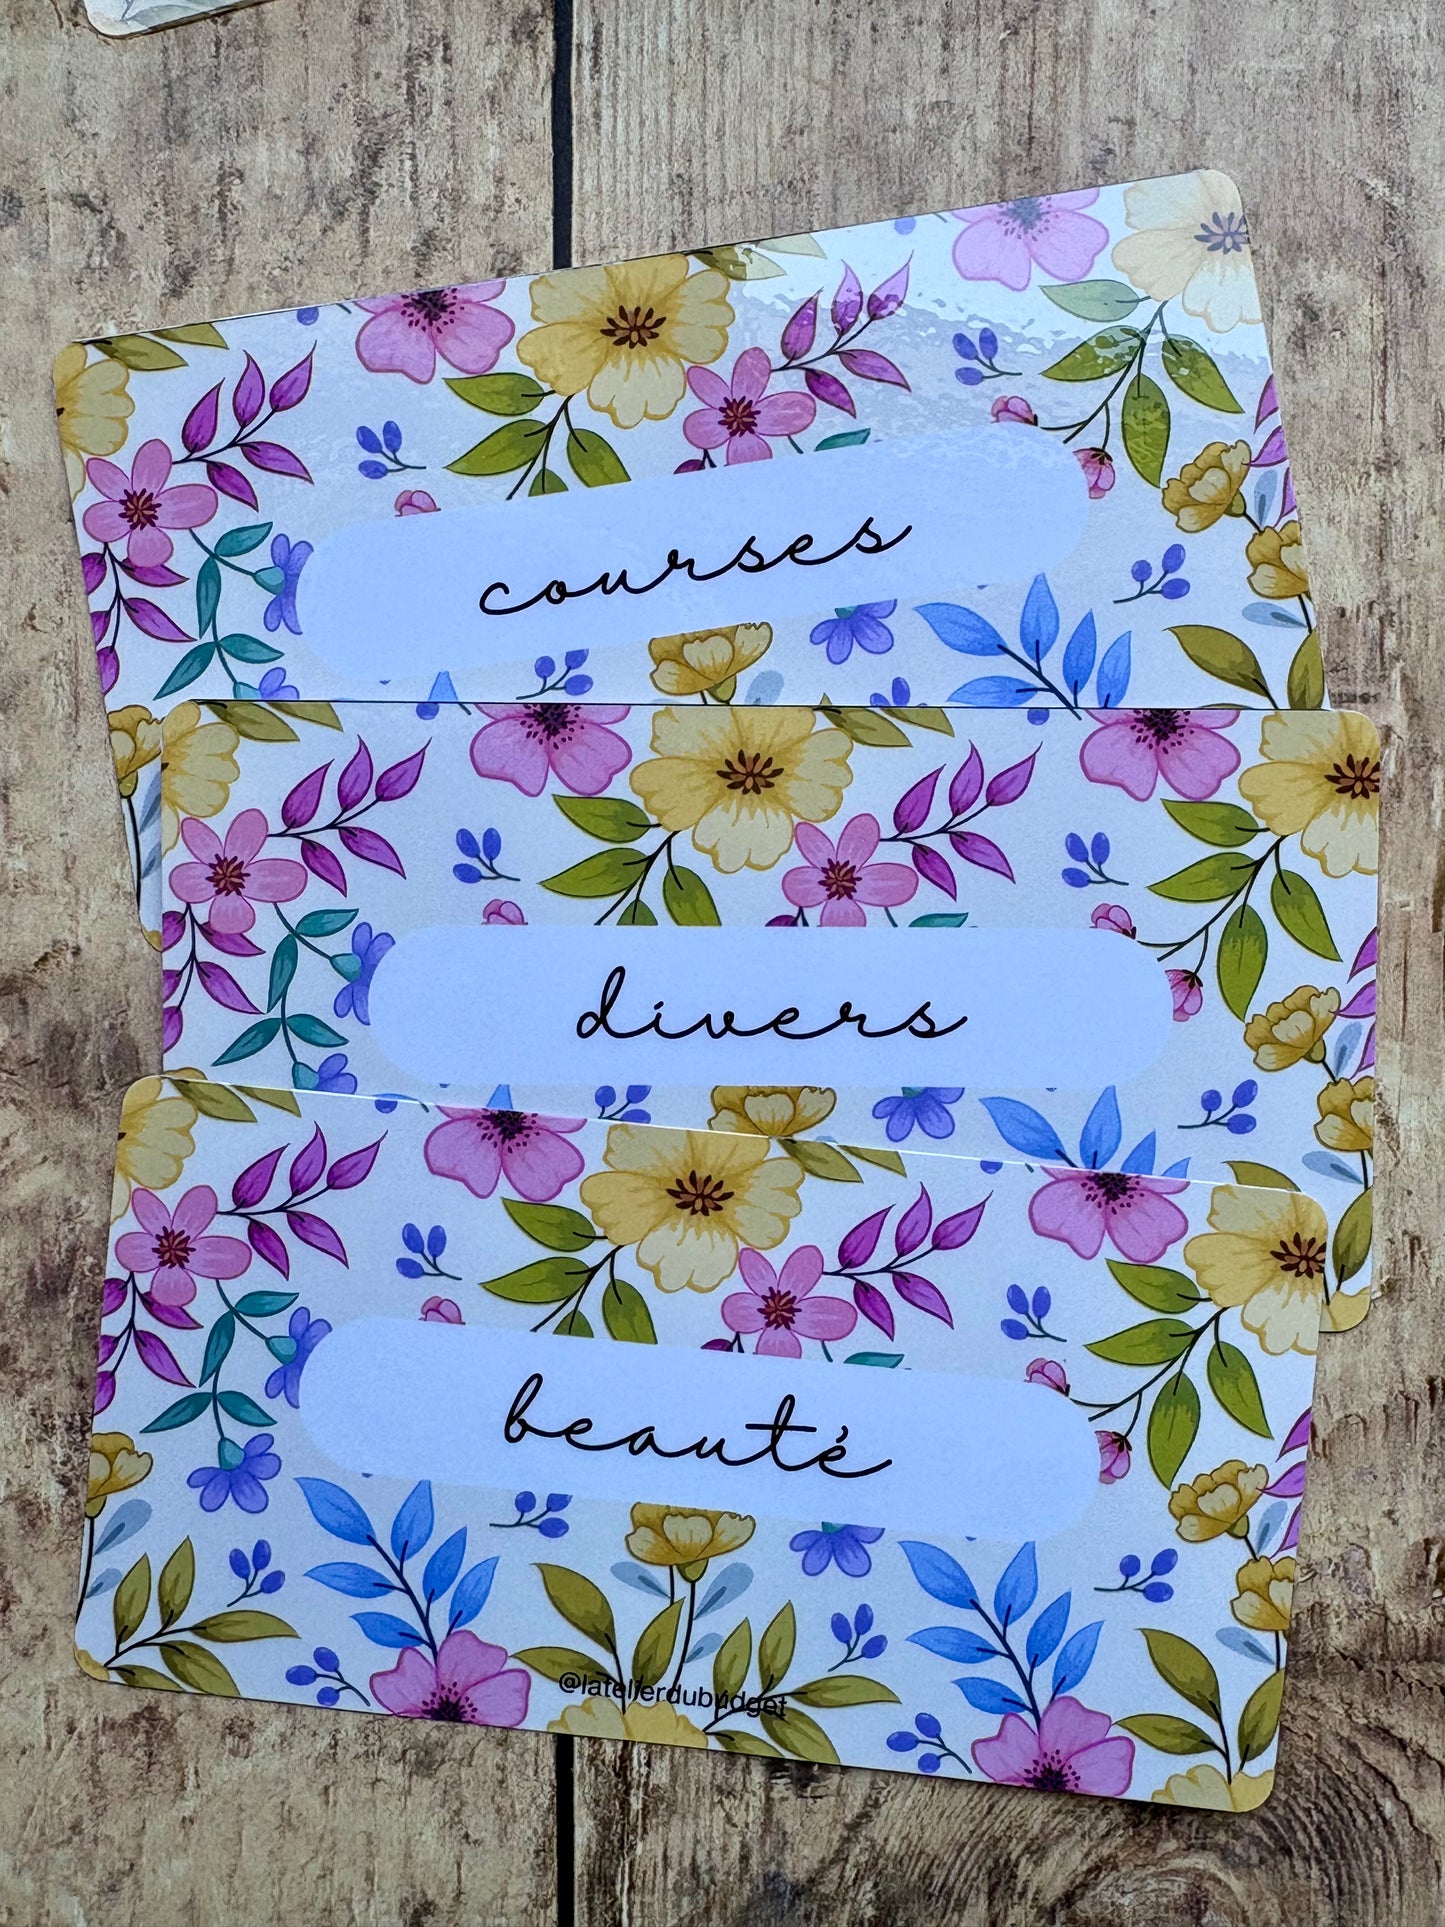 courses
divers
beauté
@latelierdubudget